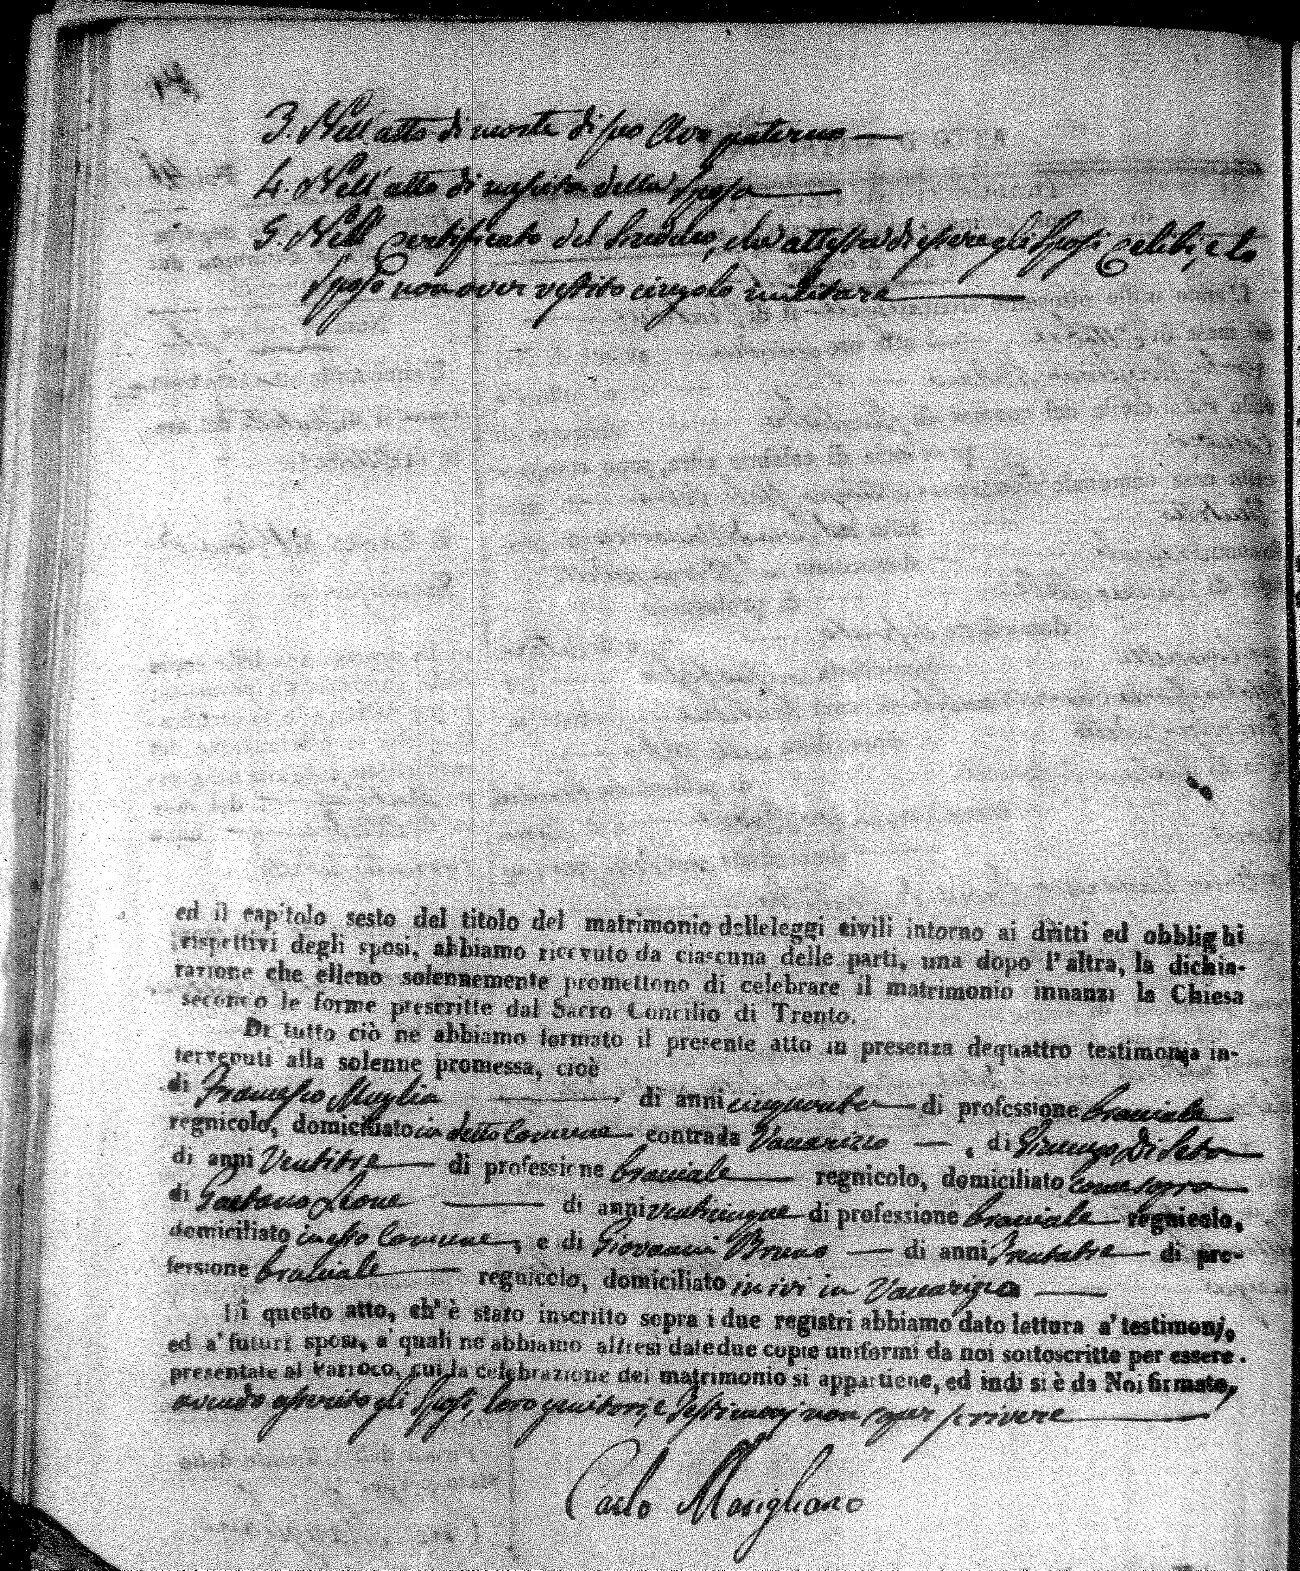 3. Nell'atto di morte di suo Avo paterno
4. Nell'atto di nascita della Sposa
5. Nell Certificato del Sindaco, che attesta di essere gli Sposi Celibi, e lo
Sposo non aver vestito cingolo militare
ed il capitolo sesto del titolo del matrimonio delleleggi civili intorno ai dritti ed obblighi
rispettivi degli sposi, abbiamo ricevuto da ciascuna delle parti, una dopo l'altra, la dichia-
razione che elleno solennemente promettono di celebrare il matrimonio innanzi la Chiesa
secondo le forme prescritte dal Sacro Concilio di Trento.
Di tutto ciò ne abbiamo formato il presente atto in presenza dequattro testimonja in-
tervenuti alla solenne promessa, cioè
di Francesco Muglia di anni cinquanta di professione bracciale
regnicolo, domiciliato in detto Comune contrada Vanarizzo , di Di
di anni Ventitre di professione bracciale regnicolo, domiciliato come sopra
di Gaetano Leone di anni venticinque di professione bracciale regnicolo,
domiciliato in esso Comune, e di Giovanni Bruno di anni Trentatre di pro-
fessione bracciale regnicolo, domiciliato in ivi in
Di questo atto, ch'è stato inscritto sopra i due registri abbiamo dato lettura a' testimonj,
ed a' futuri sposi, a' quali ne abbiamo altresì datedue copie uniformi da noi sottoscritte per essere
presentate al Parroco, cui la celebrazione del matrimonio si appartiene, ed indi si è da Noi firmato,
avendo asserito gli Sposi, loro genitori, e Testimonj non saper scrivere
Carlo Marigliano